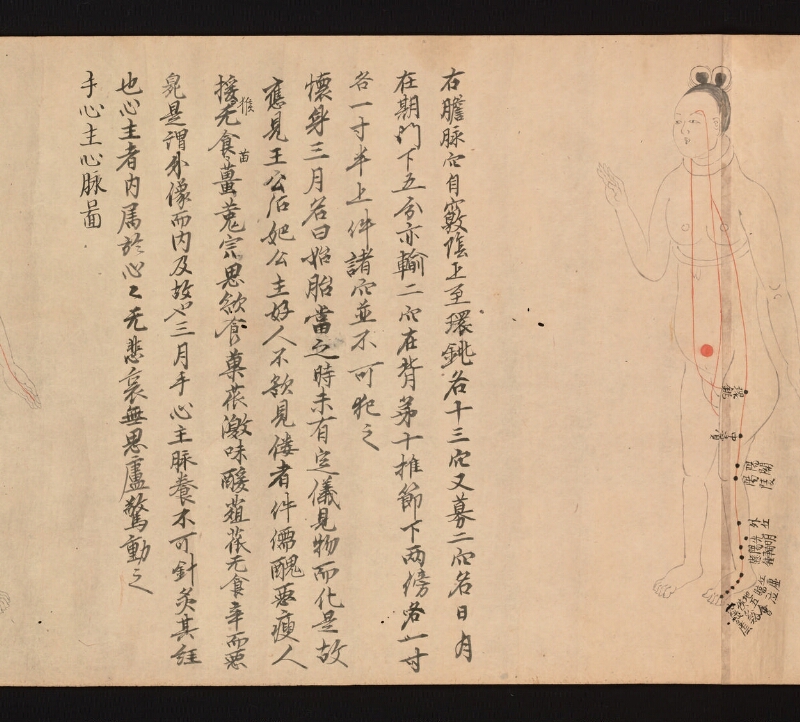 環銚
陽關
陽陵
外丘
右膽脉穴自竅陰上至環銚各十三穴又募二穴名日月
在期門下五分亦輸二穴在背第十椎節下兩傍各一寸
各一寸半上件諸穴並不可犯之
懷身三月名曰始胎當之時未有定儀見物而化是故
應見王公后妃公主好人不欲見僂者侏儒醜惡瘦人
猨猴无食苗薑菟完思欲食菓蓏激味酸葅蓏无食辛而惡
臭是謂外像而内及故也三月手心主脉養不可針灸其経
也心主者内属於心々无悲哀無思慮驚動之
手心主心脉啚